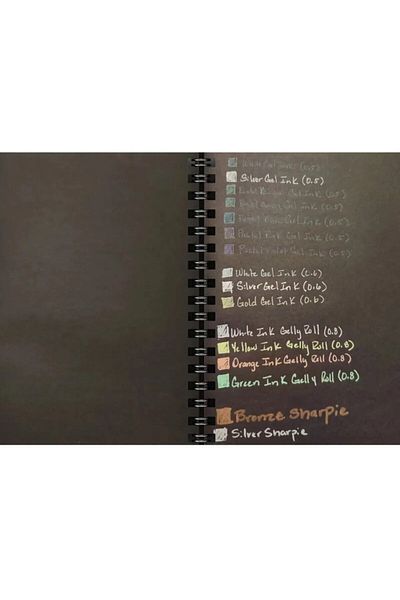 White Gel Ink (0.5)
Silver Gel Ink (0.5)
Gel Ink (0.5)
Gel Ink (0.5)
Pastel Gel Ink (0.5)
Pastel Pink Gel Ink (0.5)
Pastel Violet Gel Ink (0.5)
White Gel Ink (0.6)
Silver Gel Ink (0.6)
Gold Gel Ink (0.6)
White Ink Gelly Roll (0.8)
Yellow Ink Gelly Roll (0.8)
Orange Ink Gelly Roll (0.8)
Green Ink Gelly Roll (0.8)
Bronze Sharpie
Silver Sharpie